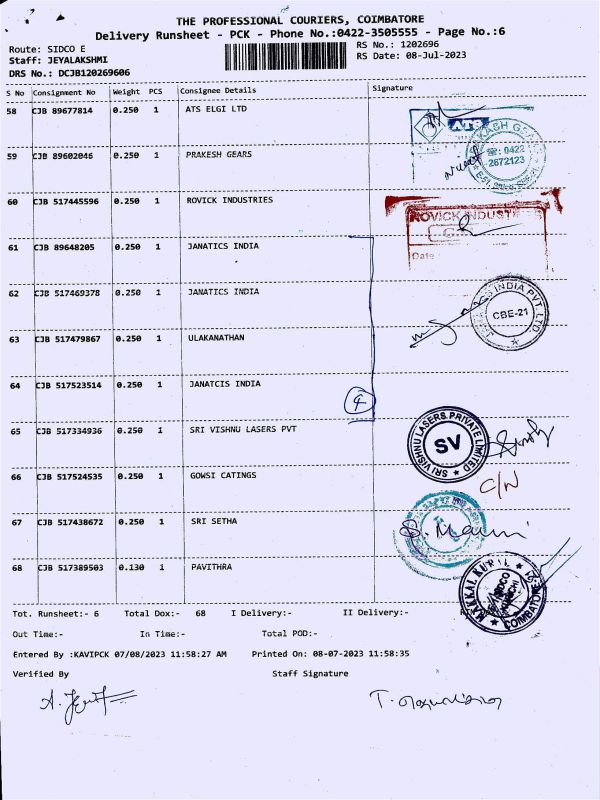 THE PROFESSIONAL COURIERS, COIMBATORE
Delivery Runsheet - PCK - Phone No.:0422-3505555 - Page No.:6
Route: SIDCO E
RS No.: 1202696
Staff: JEYALAKSHMI
RS Date: 08-Jul-2023
DRS No.: DCJB120269606
S No Consignment No Weight PCS Consignee Details Signature
58 CJB 89677814 0.250 1 ATS ELGI LTD
ATS
59 CJB 89602046 0.250 1 PRAKESH GEARS
0422
2672123
60 CJB 517445596 0.250 1 ROVICK INDUSTRIES
ROVICK INDUST
Date
61 CJB 89648205 0.250 1 JANATICS INDIA
62 CJB 517469378 0.250 1 JANATICS INDIA
INDIA PVT. LTD.
CBE-21
63 CJB 517479867 0.250 1 ULAKANATHAN
64 CJB 517523514 0.250 1 JANATCIS INDIA
4
65 CJB 517334936 0.250 1 SRI VISHNU LASERS PVT
SRI VISHNU LASERS PRIVATE LIMITED
SV
66 CJB 517524535 0.250 1 GOWSI CATINGS
C/N
67 CJB 517438672 0.250 1 SRI SETHA
68 CJB 517389503 0.130 1 PAVITHRA
MAKKAL KURAL
SIDCO
COIMBATORE
Tot. Runsheet:- 6 Total Dox:- 68 I Delivery:- II Delivery:-
Out Time:- In Time:- Total POD:-
Entered By :KAVIPCK 07/08/2023 11:58:27 AM Printed On: 08-07-2023 11:58:35
Verified By Staff Signature